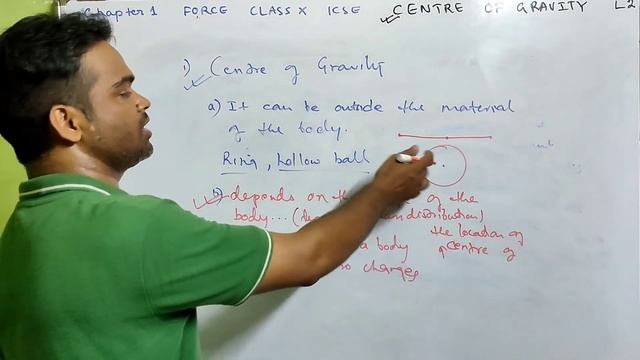 Chapter 1 FORCE CLASS X ICSE CENTRE OF GRAVITY L2
1) Centre of Gravity
a) It can be outside the material
of the body.
Ring, hollow ball
b) depends on the of the
body... ( distribution)
the location of
a body centre of
changes